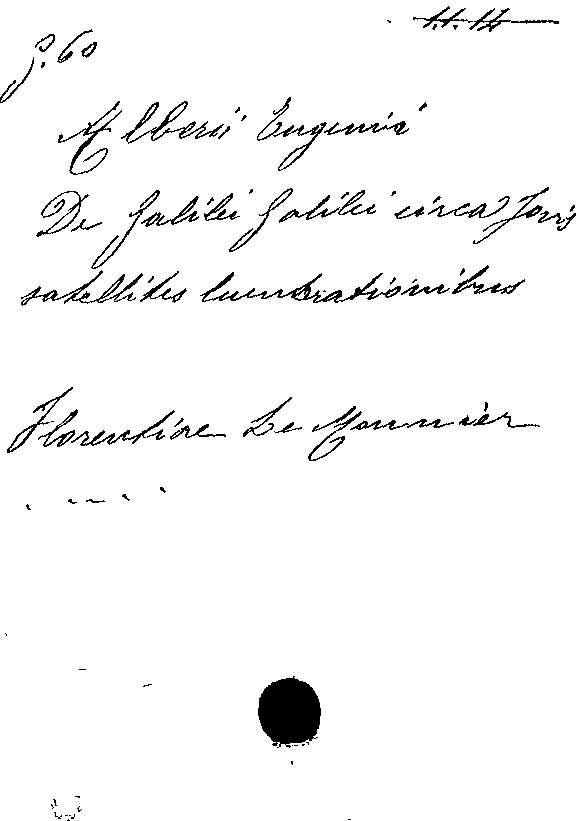 g. 60
Alberii Eugenii
De Galilei Galilei circa Jovis
satellites lucubrationibus
Florentiae Le Monnier